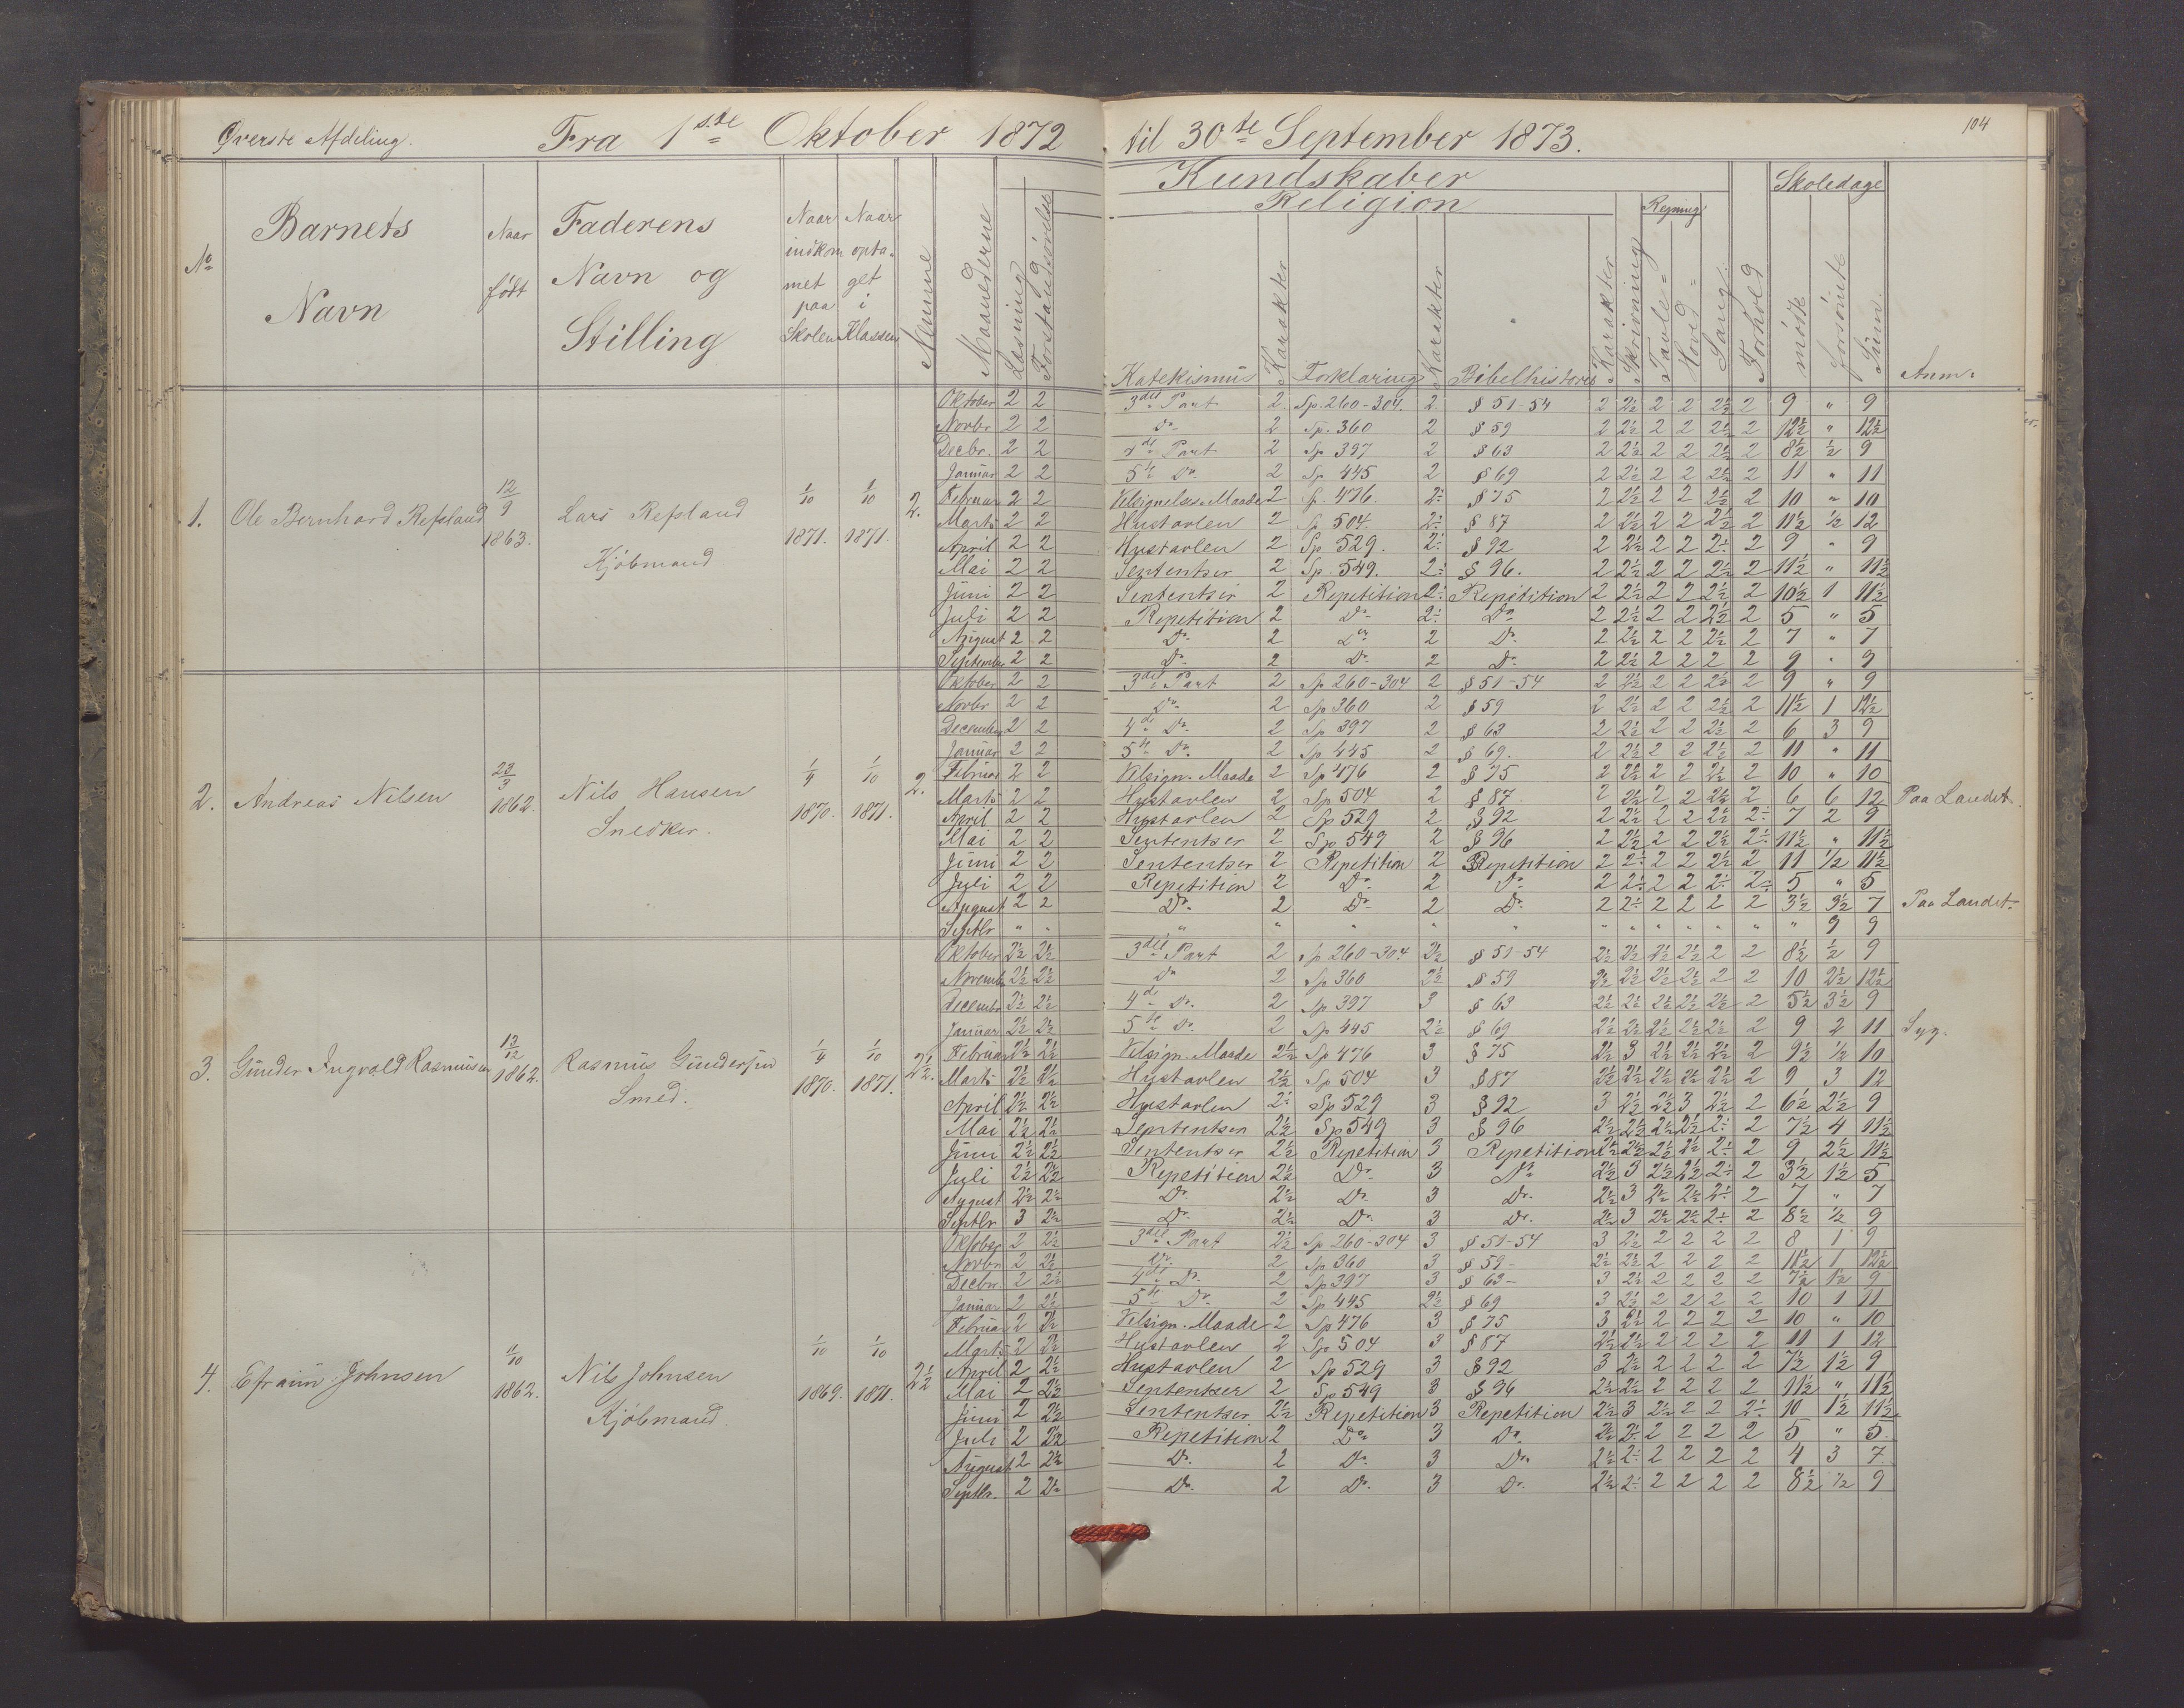 Øverste Afdeling. Fra 1ste Oktober 1872 til 30te September 1873. 104
Kundskaber Skoledage
Religion Regning
No Barnets Navn Naar født Faderens Navn og Stilling Naar indkommet paa Skolen Naar optaget i Klassen Nemme Maanederne Læsning Forstandsøvelse Katekismus Karakter Forklaring Karakter Bibelhistorie Karakter Skrivning Tavle= Hoved= Sang. Forhold mødte forsömte Sum. Anm.
1. Ole Bernhard Refsland 12/9 1863. Lars Refsland Kjöbmand 1/10 1871. 1/10 1871. 2.
Oktober 2 2 3die Part 2 Sp. 260-304. 2 § 51-54 2 2½ 2 2 2½ 2 9 " 9
Novbr 2 2 Do 2 Sp. 360 2 § 59 2 2½ 2 2 2½ 2 12½ " 12½
Decbr. 2 2 4de Part 2 Sp 397 2 § 63 2 2½ 2 2 2½ 2 8½ ½ 9
Januar 2 2 5te Do 2 Sp 445 2 § 69 2 2½ 2 2 2½ 2 11 " 11
Februar 2 2 Velsignelses Maade 2 Sp. 476. 2÷ § 75 2 2½ 2 2 2½ 2 10 " 10
Marts 2 2 Hustavlen 2 Sp 504. 2÷ § 87 2 2½ 2 2 2½ 2 11½ ½ 12
April 2 2 Hustavlen 2 Sp. 529. 2÷ § 92 2 2½ 2 2 2÷ 2 9 " 9
Mai 2 2 Sententser 2 Sp. 549. 2÷ § 96. 2 2½ 2 2 2½ 2 11½ " 11½
Juni 2 2 Sententser 2 Repetition 2÷ Repetition 2 2½ 2 2 2½ 2 10½ 1 11½
Juli 2 2 Repetition 2 Do 2÷ Do 2 2½ 2 2 2½ 2 5 " 5
August 2 2 Do 2 Do 2 Do 2 2½ 2 2 2½ 2 7 " 7
September 2 2 Do 2 Do 2 Do 2 2½ 2 2 2 2 9 " 9
2. Andreas Nilsen 28/3 1862. Nils Hansen Snedker. 1/9 1870. 1/10 1871. 2.
Oktober 2 2 3die Part 2 Sp 260-304 2 § 51-54 2 2½ 2 2 2½ 2 9 " 9
Novbr 2 2 Do 2 Sp 360 2 § 59 2 2½ 2 2 2½ 2 11½ 1 12½
December 2 2 4de Do 2 Sp 397 2 § 63 2 2½ 2 2 2½ 2 6 3 9
Januar 2 2 5te Do 2 Sp 445 2 § 69. 2 2½ 2 2 2½ 2 11 " 11
Februar 2 2 Velsign. Maade 2 Sp 476 2 § 75 2 2½ 2 2 2½ 2 10 " 10
Marts 2 2 Hustavlen 2 Sp 504 2 § 87 2 2½ 2 2 2½ 2 6 6 12 Paa Landet.
April 2 2 Hustavlen 2 Sp 529 2 § 92 2 2½ 2 2 2½ 2÷ 7 2 9
Mai 2 2 Sententser 2 Sp 549 2 § 96 2 2½ 2 2 2½ 2÷ 11½ " 11½
Juni 2 2 Sententser 2 Repetition 2 Repetition 2 2÷ 2 2 2½ 2 11 ½ 11½
Juli 2 2 Repetition 2 Do 2 Do 2 2÷ 2 2 2÷ 2÷ 5 " 5
August 2 2 Do 2 Do 2 Do 2 2÷ 2 2 2 2 3½ 3½ 7 Paa Landet.
Septbr " " " " " " " " " " " " " " 9 9
3. Gunder Ingvald Rasmusen 13/12 1862. Rasmus Gundersen Smed. 1/4 1870. 1/10 1871. 2½.
Oktober 2½ 2½ 3die Part 2 Sp 260-304 2½ § 51-54 2½ 2½ 2½ 2½ 2 2 8½ ½ 9
Novemb 2½ 2½ Do 2 Sp 360 2½ § 59 2½ 2½ 2½ 2½ 2 2 10 2½ 12½
Decembr 2½ 2½ 4de Do. 2 Sp 397 3 § 63 2½ 2½ 2½ 2½ 2½ 2 5½ 3½ 9
Januar 2½ 2½ 5te Do 2 Sp 445 2½ § 69 2½ 2½ 2½ 2½ 2½ 2 9 2 11 Syg.
Februar 2½ 2½ Velsign. Maade 2½ Sp 476 3 § 75 2½ 3 2½ 2½ 2½ 2 9½ ½ 10
Marts 2½ 2½ Hustavlen 2½ Sp 504 3 § 87 2½ 2½ 2½ 2½ 2½ 2 9 3 12
April 2½ 2½ Hustavlen 2÷ Sp 529 3 § 92 3 2½ 2½ 3 2½ 2 6½ 2½ 9
Mai 2½ 2½ Sententser 2½ Sp 549 3 § 96 2½ 2½ 2½ 2½ 2÷ 2 7½ 4 11½
Juni 2½ 2½ Sententser 2½ Repetition 3 Repetition 2½ 2½ 2½ 2½ 2÷ 2 9 2½ 11½
Juli 2½ 2½ Repetition 2½ Do 3 Do 2½ 3 2½ 2½ 2÷ 2 3½ 1½ 5
August 2½ 2½ Do 2½ Do 3 Do 2½ 3 2½ 2½ 2÷ 2 7 " 7
Septbr 3 2½ Do 2½ Do 3 Do. 2½ 3 2½ 2½ 2÷ 2 8½ ½ 9
4. Efraim Johnsen 11/10 1862. Nils Johnsen Kjöbmand. 1/10 1869. 1/10 1871. 2½
Oktober 2 2½ 3die Part 2½ Sp 260-304 3 § 51-54 3 2½ 2 2 2 2 8 1 9
Novbr 2 2½ Do 2 Sp 360 3 § 59- 2½ 2½ 2 2 2 2 11½ 1 12½
Decbr 2 2½ 4de Do. 2 Sp 397 3 § 63- 3 2½ 2 2 2 2 7½ 1½ 9
Januar 2 2½ 5te Do. 2 Sp 445 2½ § 69 3 2½ 2 2 2 2 10 1 11
Februar 2 2½ Velsign. Maade 2 Sp 476 3 § 75 3 2½ 2 2 2 2 10 " 10
Marts 2 2½ Hustavlen 2 Sp 504 3 § 87 2½ 2½ 2 2 2 2 11 1 12
April 2 2½ Hustavlen 2 Sp 529 3 § 92 3 2½ 2 2 2 2 7½ 1½ 9
Mai 2 2½ Sententser 2 Sp 549 3 § 96 2½ 2½ 2 2 2 2 11½ " 11½
Juni 2 2½ Sententser 2½ Repetition 3 Repetition 2½ 3 2½ 2 2 2÷ 10 1½ 11½
Juli 2 2½ Repetition 2 Do 3 Do 2½ 2÷ 2 2 2 2 5 " 5.
August 2 2½ Do. 2 Do. 3 Do. 2½ 2÷ 2 2 2 2 4 3 7
Septbr. 2 2½ Do. 2 Do. 3 Do. 2½ 2÷ 2 2 2 2 8½ ½ 9